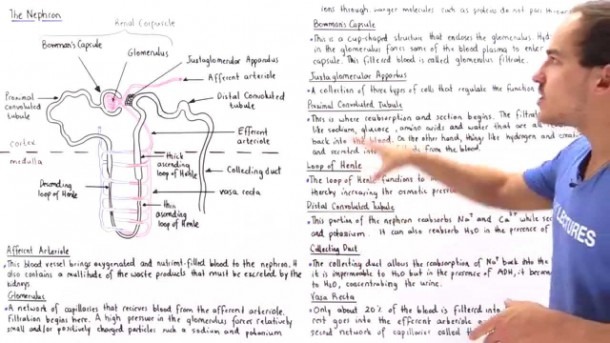 The Nephron
Renal Corpuscle
Bowman's Capsule
Glomerulus
Juxtaglomerular Apparatus
Afferent arteriole
Proximal
convoluted
tubule
Distal Convoluted
tubule
Efferent
arteriole
cortex
medulla
thick
ascending
loop of Henle
Collecting duct
Descending
loop of Henle
vasa recta
thin
ascending
loop of Henle
Afferent Arteriole
•This blood vessel brings oxygenated and nutrient-filled blood to the nephron, it
also contains a multitude of the waste products that must be excreted by the
kidneys
Glomerulus
•A network of capillaries that recieves blood from the afferent arteriole.
Filtration begins here. A high pressure in the glomerulus forces relatively
small and/or positively charged particles such a sodium and potassium
ions through. Larger molecules such as proteins do not pass through
Bowman's Capsule
•This is a cup-shaped structure that encloses the glomerulus. Hyd
in the glomerulus forces some of the blood plasma to enter
capsule. This filtered blood is called glomerular filtrate.
Juxtaglomerular Apparatus
•A collection of three types of cells that regulate the function
Proximal Convoluted Tubule
•This is where reabsorption and secretion begins. The filtra
like sodium, glucose, amino acids and water that are all
back into the blood. On the other hand, things like hydrogen and
and secreted into from the blood.
Loop of Henle
•The loop of Henle functions to
thereby increasing the osmotic press
Distal Convoluted Tubule
•This portion of the nephron reabsorbs Na+ and Ca2+ while sec
and potassium. It can also reabsorb H2O in the presence of
Collecting Duct
•The collecting duct allows the reabsorption of Na+ back into the
it is impermeable to H2O but in the presence of ADH, it becom
to H2O, concentrating the urine.
Vasa Recta
•Only about 20% of the blood is filtered into
rest goes into the efferent arteriole
second network of capillaries called th
LECTURES